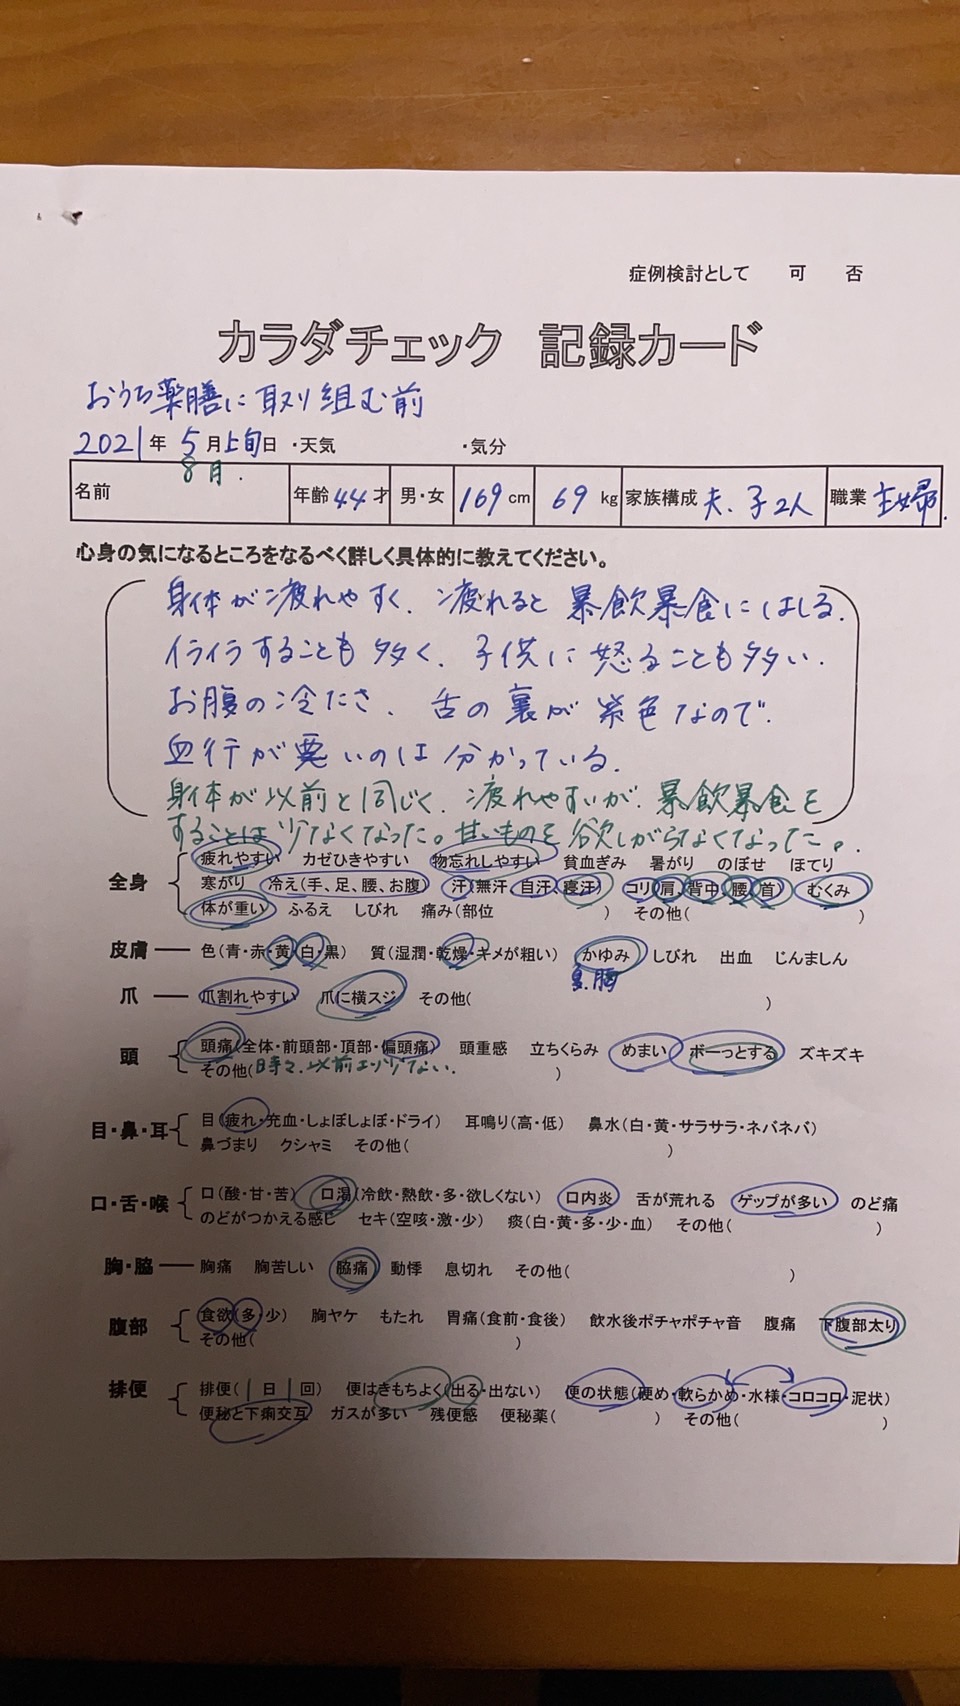 症例検討として　可　否
カラダチェック　記録カード
おうち薬膳に取り組む前
2021年 5月上旬日 ・天気　・気分
8月.
名前　年齢44才　男・女　169cm　69kg　家族構成 夫、子2人　職業 主婦.
心身の気になるところをなるべく詳しく具体的に教えてください。
身体が疲れやすく、疲れると暴飲暴食にはしる.
イライラすることも多く、子供に怒ることも多い.
お腹の冷たさ、舌の裏が紫色なので、
血行が悪いのは分かっている.
身体が以前と同じく、疲れやすいが、暴飲暴食を
することは少なくなった。甘いものを欲しがらなくなった。
疲れやすい　カゼひきやすい　物忘れしやすい　貧血ぎみ　暑がり　のぼせ　ほてり
全身　寒がり　冷え(手、足、腰、お腹)　汗(無汗、自汗、寝汗)　コリ(肩、背中、腰、首)　むくみ
体が重い　ふるえ　しびれ　痛み(部位　)　その他(　)
皮膚　色(青・赤・黄・白・黒)　質(湿潤・乾燥・キメが粗い)　かゆみ　しびれ　出血　じんましん
爪　爪割れやすい　爪に横スジ　その他(　)
頭　頭痛(全体・前頭部・頂部・偏頭痛)　頭重感　立ちくらみ　めまい　ボーっとする　ズキズキ
その他(時々、以前より少ない.　)
目・鼻・耳　目(疲れ・充血・しょぼしょぼ・ドライ)　耳鳴り(高・低)　鼻水(白・黄・サラサラ・ネバネバ)
鼻づまり　クシャミ　その他(　)
口・舌・喉　口(酸・甘・苦)　口渇(冷飲・熱飲・多・欲しくない)　口内炎　舌が荒れる　ゲップが多い　のど痛
のどがつかえる感じ　セキ(空咳・激・少)　痰(白・黄・多・少・血)　その他(　)
胸・脇　胸痛　胸苦しい　脇痛　動悸　息切れ　その他(　)
腹部　食欲(多・少)　胸ヤケ　もたれ　胃痛(食前・食後)　飲水後ポチャポチャ音　腹痛　下腹部太り
その他(　)
排便　排便(1日1回)　便はきもちよく(出る・出ない)　便の状態(硬め・軟らかめ・水様・コロコロ・泥状)
便秘と下痢交互　ガスが多い　残便感　便秘薬(　)　その他(　)